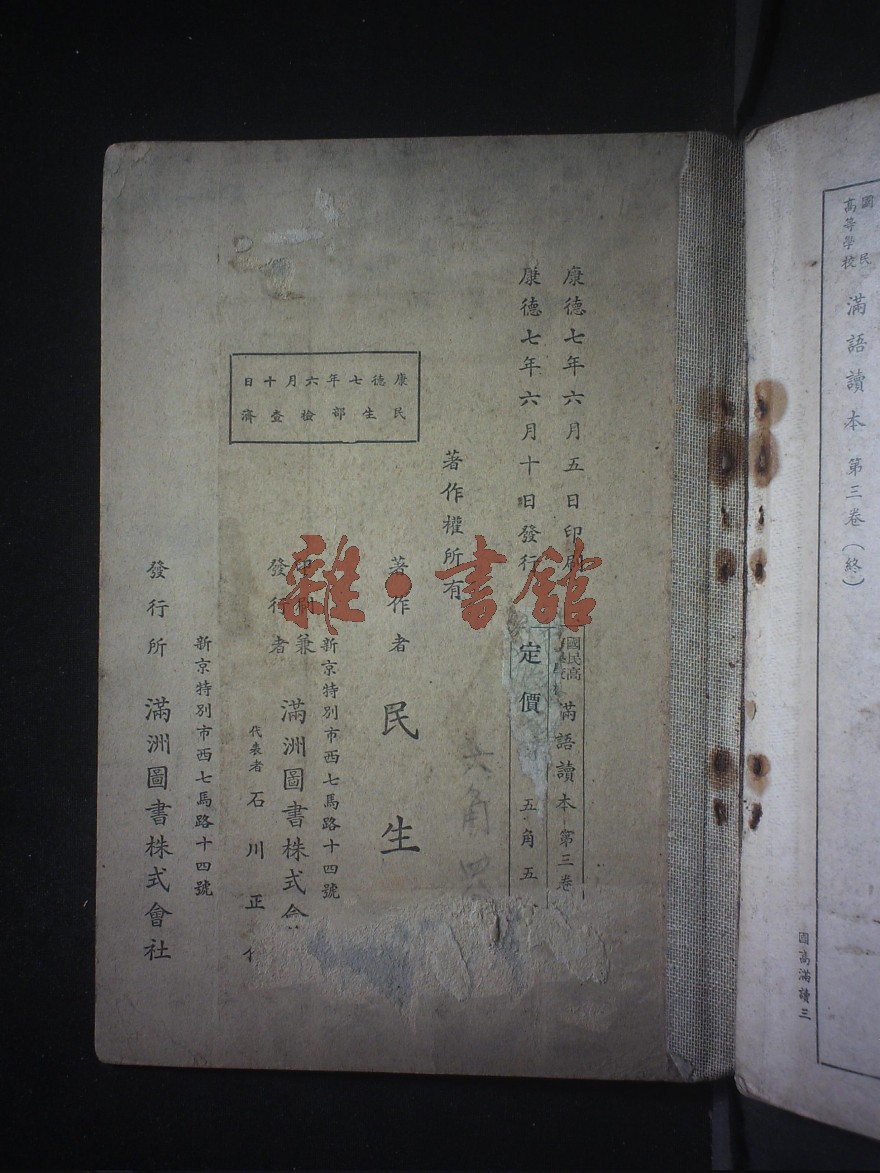 國民
高等學校
滿語讀本 第三卷(終)
國高滿讀三
康德七年六月五日印刷
康德七年六月十日發行
國民高
滿語讀本 第三卷
定價
五角五
六角
著作權所有
康德七年六月十日
民生部檢查濟
著作者 民生
新京特別市西七馬路十四號
印刷兼
發行者
滿洲圖書株式會
代表者 石川正
新京特別市西七馬路十四號
發行所 滿洲圖書株式會社
雜·書館